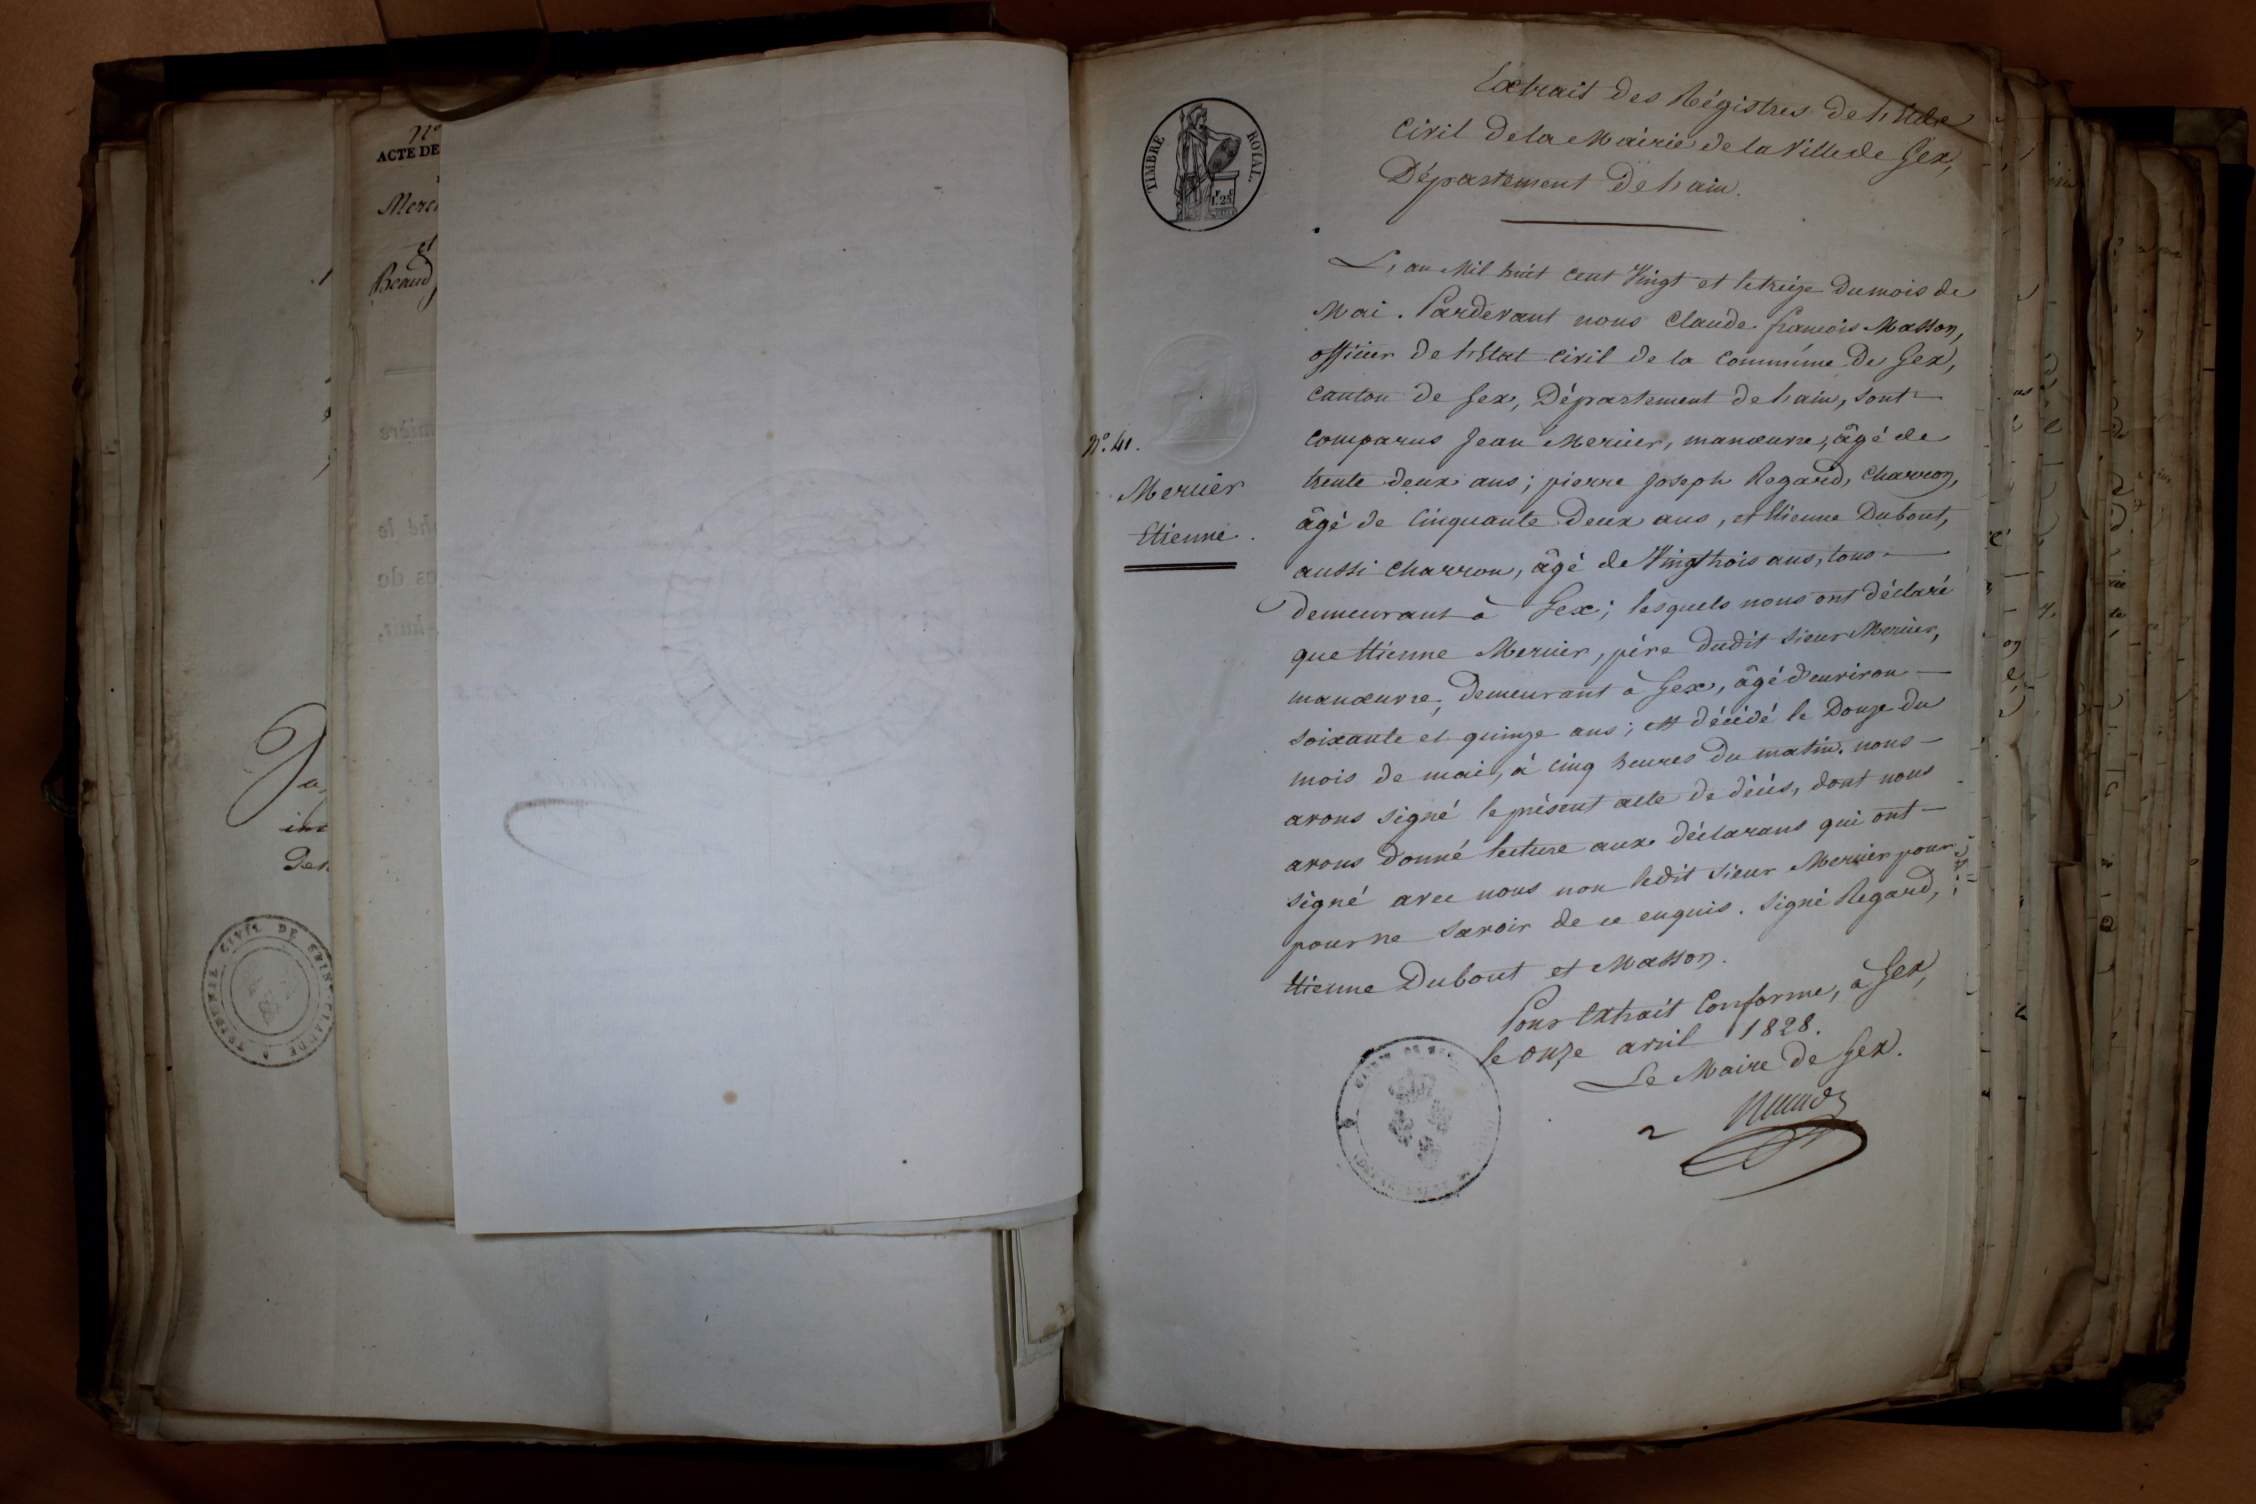 N°
ACTE DE
Merc
et
Beaud
TRIBUNAL CIVIL DE
TIMBRE ROYAL
1F 25C
Extrait des Régistres de l'Etat
Civil de la Mairie de la Ville de Gex,
Département de l'ain.
L'an Mil huit cent Vingt et le treize du mois de
Mai. Pardevant nous Claude françois Masson,
officier de l'Etat civil de la commune de Gex,
canton de Gex, Département de l'ain, sont
comparus Jean Mercier, manœuvre, âgé de
trente deux ans; pierre Joseph Regard, charron,
âgé de Cinquante deux ans, et Etienne Dubout,
aussi charron, âgé de Vingt trois ans, tous
demeurant à Gex; lesquels nous ont déclaré
que Etienne Mercier, père dudit sieur Mercier,
manœuvre, demeurant à Gex, âgé d'environ
soixante et quinze ans; est décédé le Douze du
mois de mai, à cinq heures du matin. nous
avons signé le présent acte de décès, dont nous
avons donné lecture aux déclarans qui ont
signé avec nous non ledit sieur Mercier pour
pour ne savoir de ce enquis. signé Regard,
Etienne Dubout et Masson.
N° 41.
Mercier
Etienne.
Pour Extrait Conforme, à Gex,
le onze avril 1828.
Le Maire de Gex.